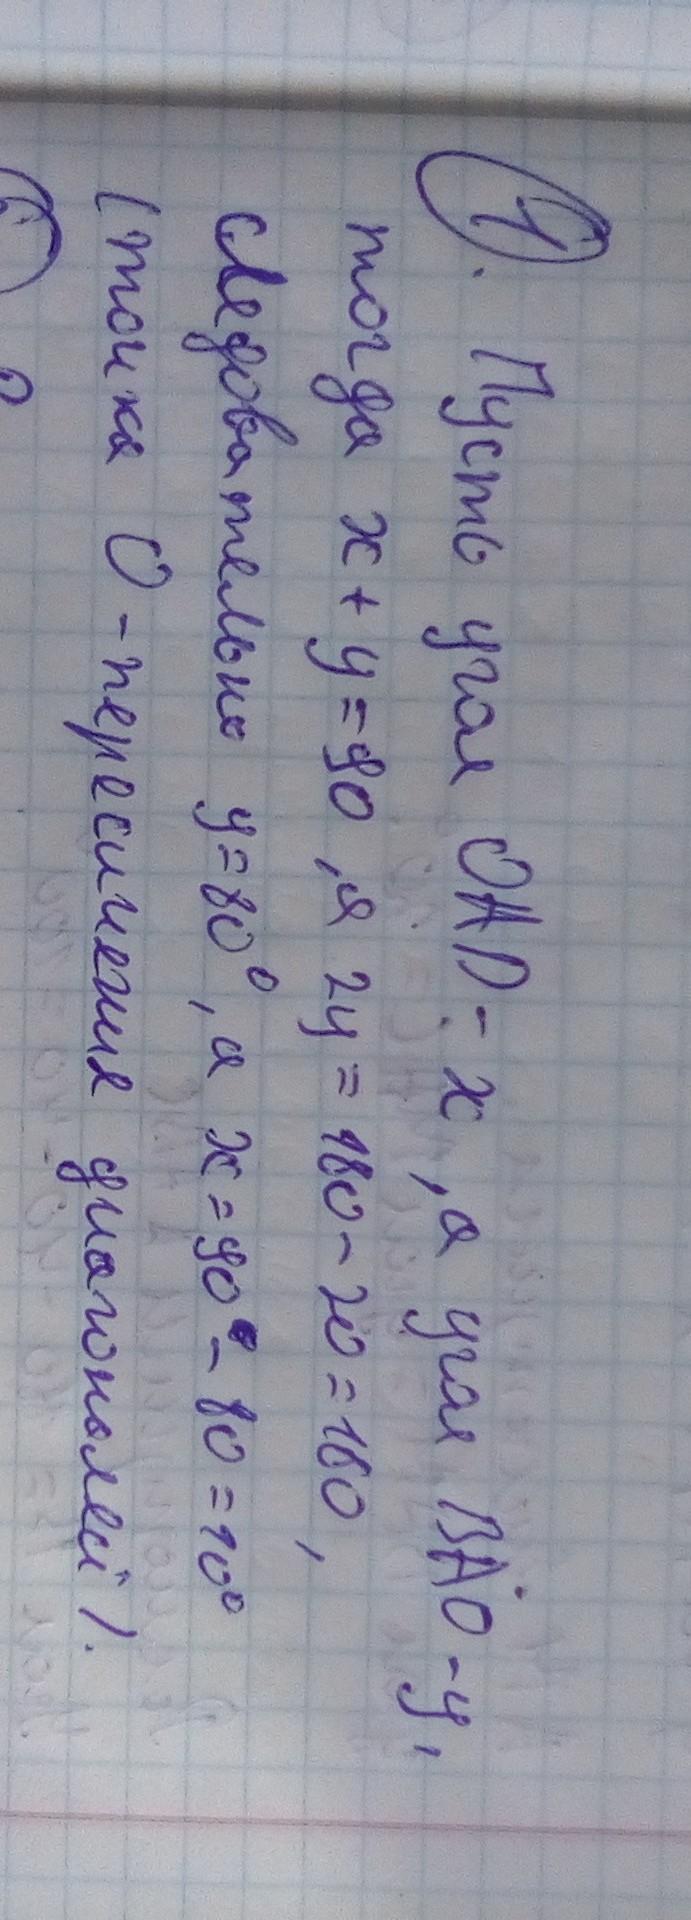 1. Пусть угол OAD - x, а угол BAO - y,
тогда x + y = 90, а 2y = 180 - 20 = 160,
следовательно y = 80°, а x = 90° - 80 = 10°
(точка O - пересичения диагоналей).